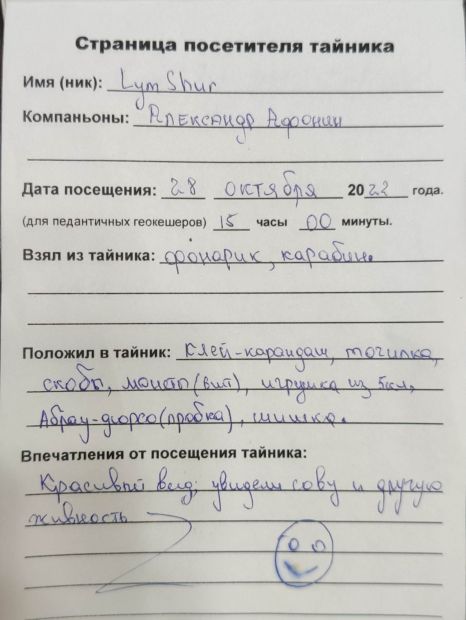 Страница посетителя тайника
Имя (ник): LymShur
Компаньоны: Александр Афонин
Дата посещения: 28 октября 2022 года.
(для педантичных геокешеров) 15 часы 00 минуты.
Взял из тайника: фонарик, карабин.
Положил в тайник: клей-карандаш, точилка,
скобы, монеты (вит), игрушка из
Абрау-дюрсо (пробка), шишка.
Впечатления от посещения тайника:
Красивый вид; увидели сову и другую
живность